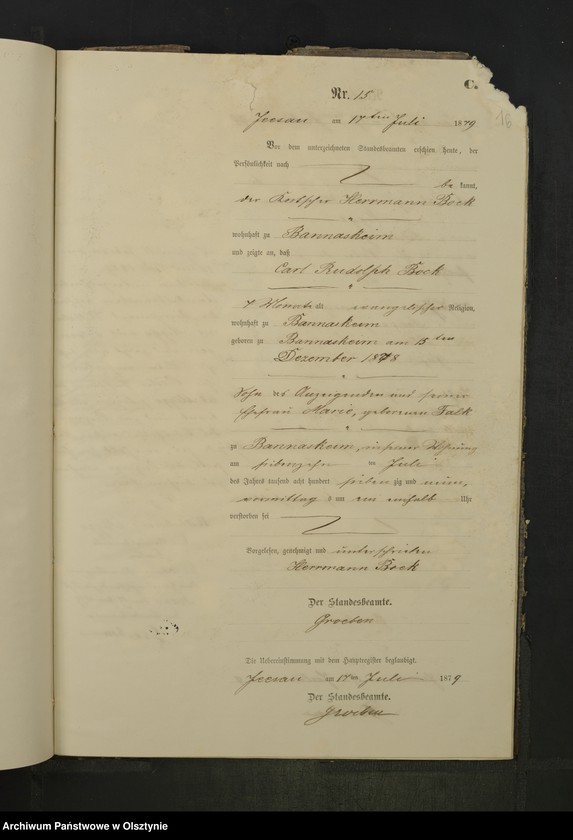 C.
16
Nr. 15.
Jeesau am 17ten Juli 1879
Vor dem unterzeichneten Standesbeamten erschien heute, der
Persönlichkeit nach
be kannt,
der Kutscher Herrmann Bock
wohnhaft zu Bannaskeim
und zeigte an, daß
Carl Rudolph Bock
7 Monate alt evangelischer Religion,
wohnhaft zu Bannaskeim
geboren zu Bannaskeim am 15ten
Dezember 1878
Sohn des Anzeigenden und seiner
Ehefrau Marie, geborenen Falk
zu Bannaskeim, in seiner Wohnung
am siebenzehn ten Juli
des Jahres tausend acht hundert sieben zig und neun,
vormittag s um ein einhalb Uhr
verstorben sei
Vorgelesen, genehmigt und unterschrieben
Herrmann Bock
Der Standesbeamte.
Groeben
Die Uebereinstimmung mit dem Hauptregister beglaubigt.
Jeesau am 17ten Juli 1879
Der Standesbeamte.
Groeben
Archiwum Państwowe w Olsztynie